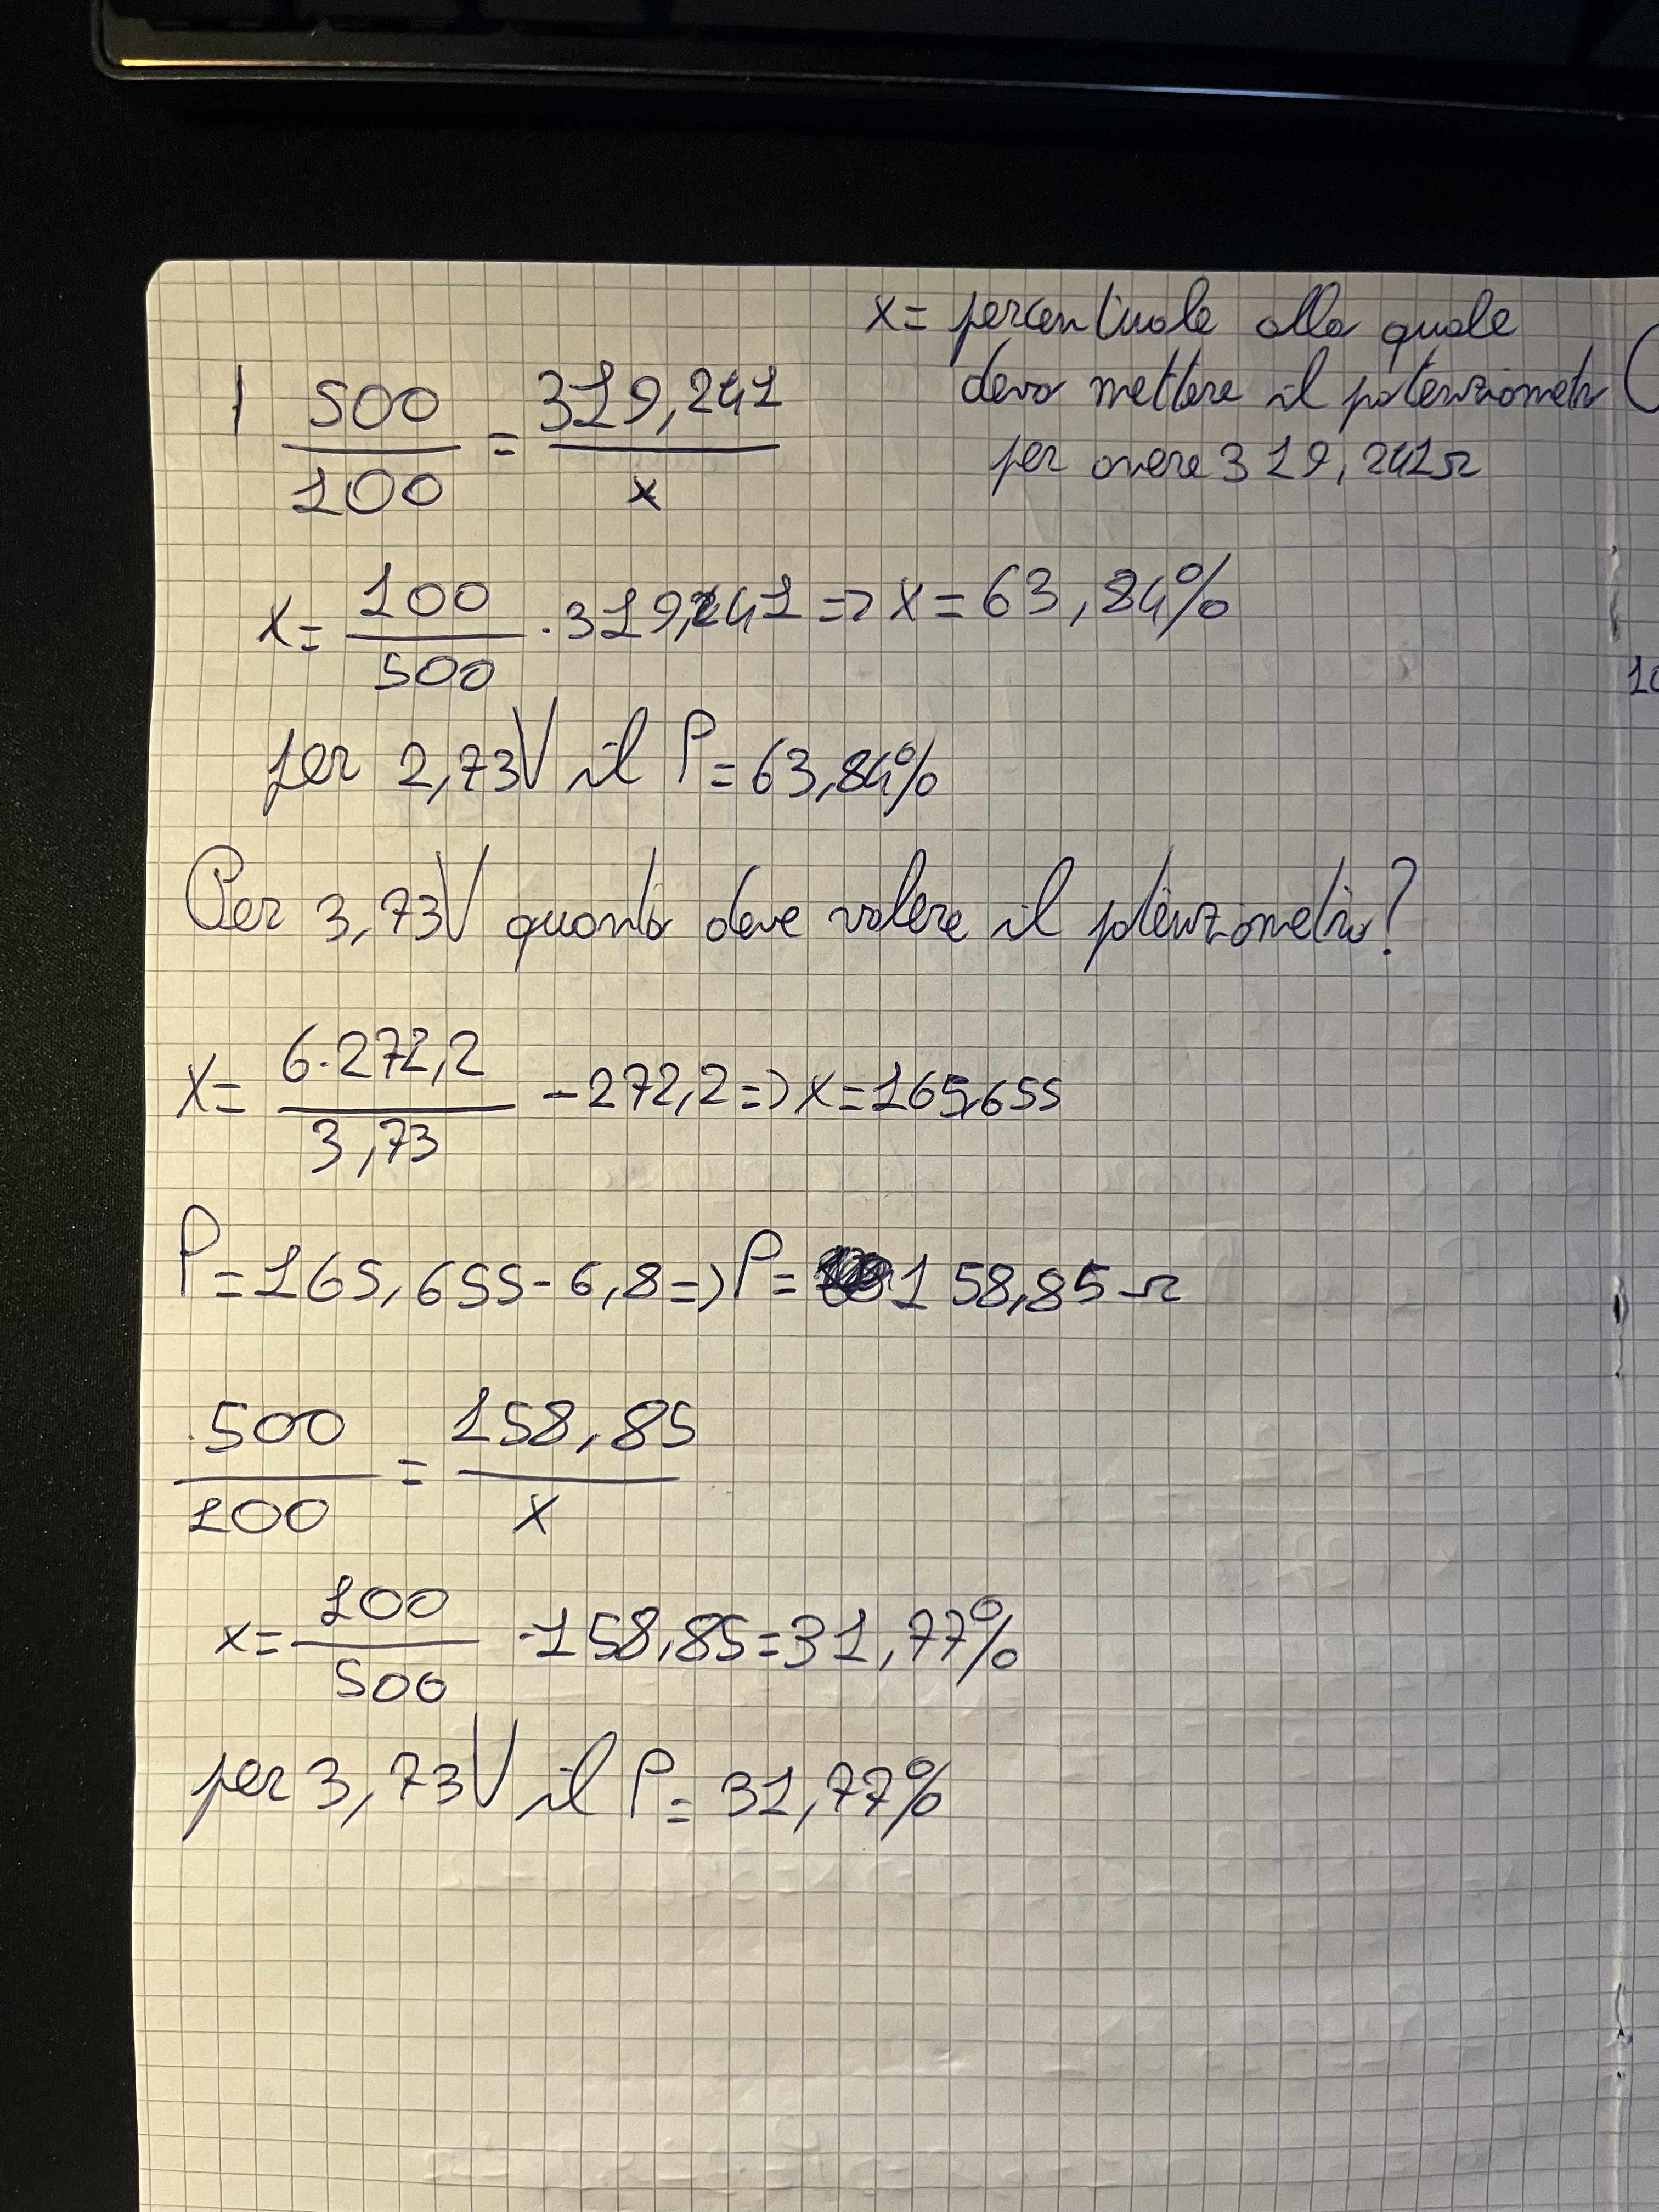 x = percentuale alla quale
devo mettere il potenziometro
per avere 319,241Ω
500/100 = 319,241/x
x = 100/500 · 319,241 => x = 63,84%
per 2,73V il P = 63,84%
Per 3,73V quanto deve valere il potenziometro?
x = 6·272,2/3,73 - 272,2 => x = 165,655
P = 165,655 - 6,8 => P = 158,85 Ω
500/100 = 158,85/x
x = 100/500 · 158,85 = 31,77%
per 3,73V il P = 31,77%